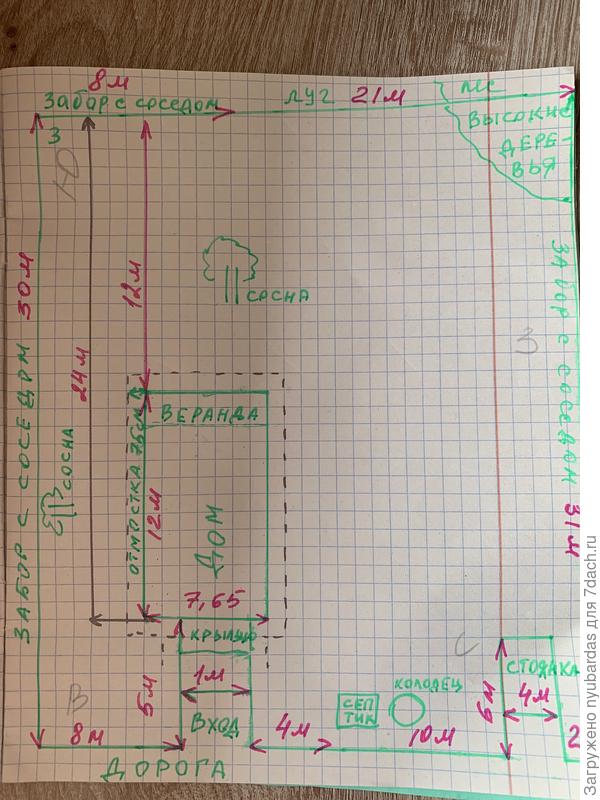 8м
Забор с соседом
ЛУГ 21м
ЛЕС
ВЫСОКИЕ
ДЕРЕ-
ВЬЯ
З
Ю
ЗАБОР С СОСЕДОМ 30М
24М
12М
СОСНА
СОСНА
ЗАБОР С СОСЕДОМ 31М
З
ВЕРАНДА
ОТМОСТКА 75СМ
12М
ДОМ
7,65
КРЫЛЬЦО
5М
1М
ВХОД
В
8М
4М
СЕП
ТИК
КОЛОДЕЦ
10М
С
6М
СТОЯНКА
4М
2
ДОРОГА
Загружено nyubardas для 7dach.ru